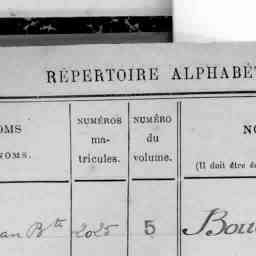 RÉPERTOIRE ALPHABÉ
OMS
NOMS.
NUMÉROS
ma-
tricules.
NUMÉRO
du
volume.
NO
(Il doit être é
an Bte 2025 5 Bou